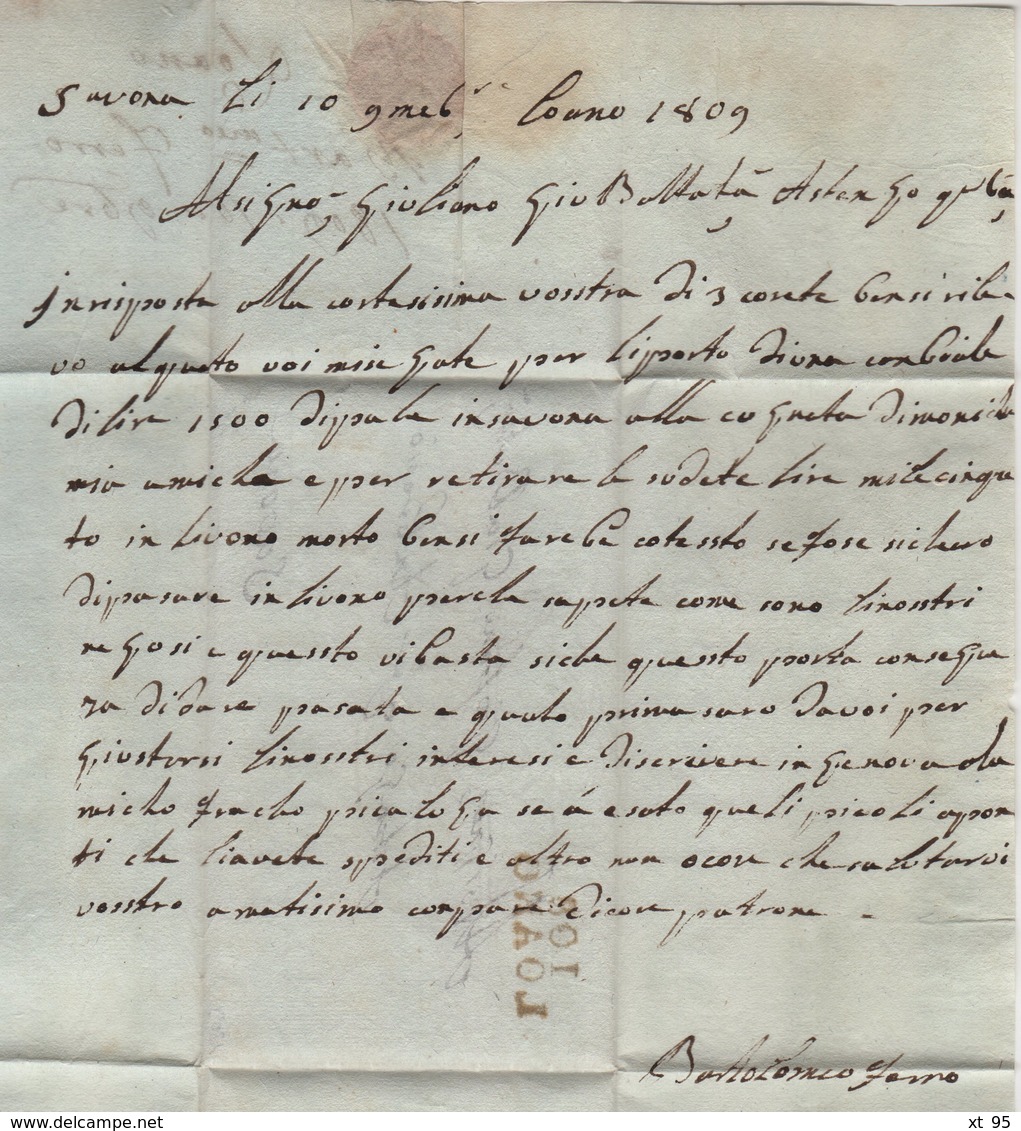 Savona li 10 9mbre Loano 1809
Al Signor Giuliano Gio Batta Astengo
In risposta alla cortesissima vosstra di 3 corete bensi rile
vo alquato voi mi per li porto di una conbiale
di lire 1500 di pala in savona alla cogneta di
mia amicha e per retirare le sudete lire mile cinque
to in livono morto bensi farebe cotessto se fose sichuro
di pasare in livono perche sapete come sono li nosstri
negosi e quessto vi basta siche quessto porta consegue
za di dare pasata e quato prima saro da voi per
giustarsi li nosstri interesi e di scrivere in genova ala
micho fracho picaloga se á esato queli picoli apon
ti che li avete spediti e altro non ocore che salutarvi
vosstro amatisimo conpare di core patrone
Bartolomeo Ferro
108
LOANO
xt 95
delcampe.net